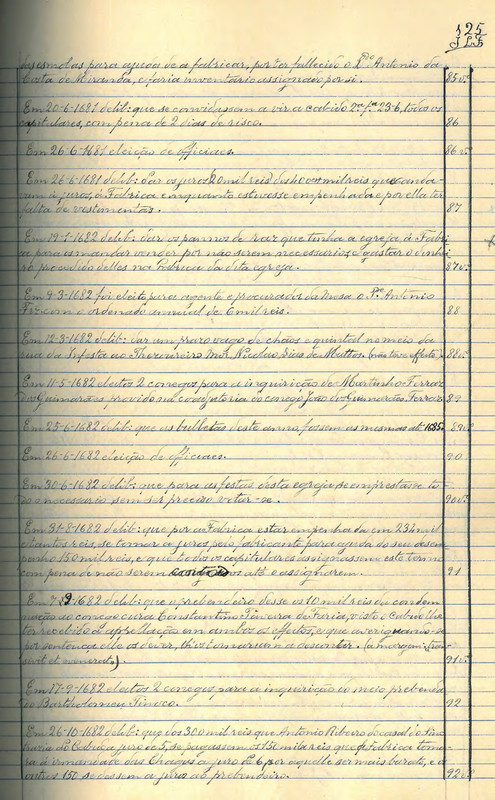 125
J L F
das esmolas para ajuda de a fabricar, por ter fallecido o P.e Antonio da
Costa de Miranda, e faria inventario assignado por si. 85 v.
Em 20-6-1681 delib: que se convidassem a vir a cabido 2ª fª 23-6, todos os
capitulares, com pena de 2 dias de risco. 86
Em 26-6-1681 eleição de officiaes. 86 v.
Em 26-6-1681 delib: dar os juros 20 mil reis dos 400 mil reis que anda-
vam a juros, á Fabrica enquanto estivesse empenhada e por ella ter
falta de vestimentas. 87
Em 19-1-1682 delib: dar os pannos de raz que tinha a egreja, á Fabri-
ca para os mandar vender por não serem necessarios, e gastar o dinhei-
ro procedido delles na Fabrica da dita egreja. 87 v.
Em 9-3-1682 foi eleito para agente e procurador da Mesa o P.e Antonio
Frz com o ordenado annual de 6 mil reis. 88
Em 12-3-1682 delib: dar um prazo vago de chãos e quintal no meio da
rua da Infesta ao Thesoureiro Mór Nicolau Dias de Mattos. (não teve effeito). 88 v.
Em 11-5-1682 eleitos 2 conegos para a inquirição de Martinho Ferraz
de Guimarães provido na coadjutoria do conego João de Guimarães Ferraz 89
Em 25-6-1682 delib: que as bulletas deste anno fossem as mesmas até 1685. 89 v.
Em 26-6-1682 eleição de officiaes. 90
Em 30-6-1682 delib: que para as festas desta egreja se emprestasse tu-
do o necessario sem ser preciso votar-se. 90 v.
Em 31-8-1682 delib: que por a Fabrica estar empenhada em 234 mil
e tantos reis, se tomar a juros pelo fabricante para ajuda do seu desem-
penho 150 mil reis, e que todos os capitulares assignassem este termo
com pena de não serem contados até o assignarem. 91
Em 7-9-1682 delib: que o prebendeiro desse os 10 mil reis da condem-
nação ao conego cura Constantino Pereira de Faria, visto o cabido lhe
ter recebido a appellação em ambos os effeitos, e que averiguando-se
por sentença elle os dever, lhos tornariam a descontar. 91 v.
Em 17-9-1682 eleitos 2 conegos para a inquirição do meio prebendado
Bartholomeu Tinoco. 92
Em 26-10-1682 delib: que dos 300 mil reis que Antonio Ribeiro do casal
do Cabido a juro de 5, se pagassem os 150 mil reis que a Fabrica tomou
á irmandade das Chagas a juro de 6, por aquelle ser mais barato, e os
outros 150 se dessem a juros ao prebendeiro. 92 v.